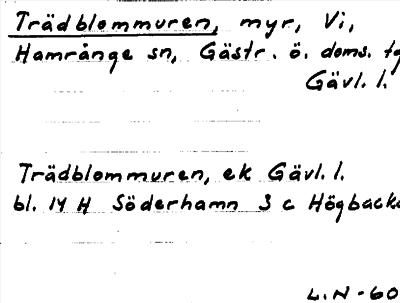 Trädblommuren, myr, Vi,
Hamrånge sn, Gästr. ö. doms. tg
Gävl. l.
Trädblommuren, ek Gävl. l.
bl. 14 H Söderhamn 3 c Högbacka
L.N-60